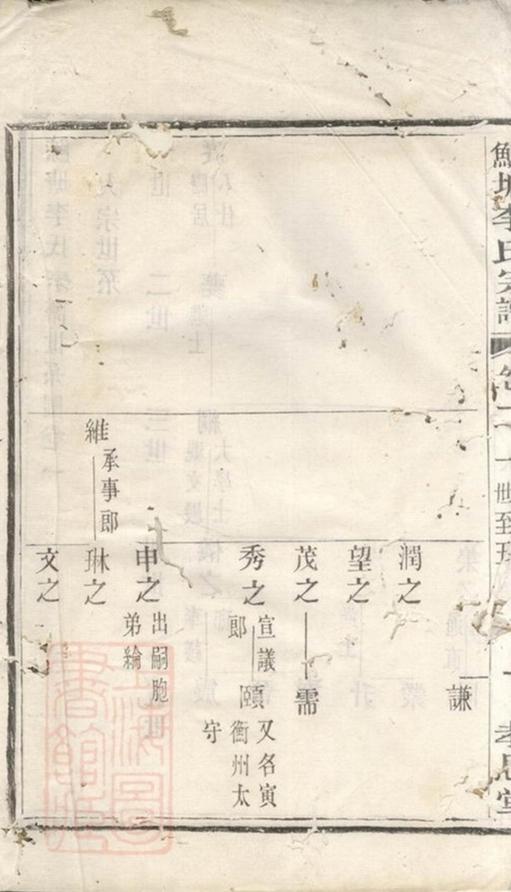 李氏宗譜 卷二 一世至
孝思堂
謙
潤之
望之
茂之 需
秀之 宣議郎 頤 又名寅 衡州太守
申之 出嗣胞弟綸
維 承事郎 琳之
文之